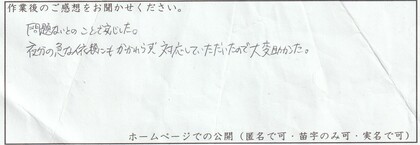 作業後のご感想をお聞かせください。
問題ないとのことで安心した。
夜分の急な依頼にもかかわらず対応していただいたので大変助かった。
ホームページでの公開（匿名で可・苗字のみ可・実名で可）